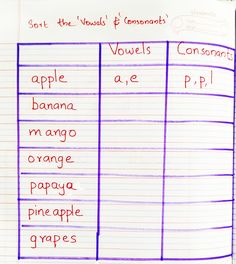 Sort the 'Vowels' & 'Consonants'
Vowels Consonants
apple a,e p,p,l
banana
mango
orange
papaya
pineapple
grapes